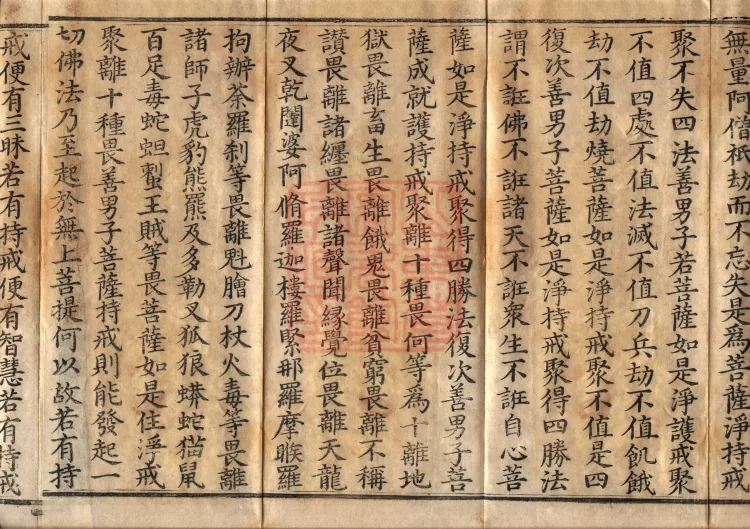 無量阿僧祇劫而不忘失是爲菩薩淨持戒
聚不失四法善男子若菩薩如是淨護戒聚
不值四處不值法滅不值刀兵劫不值飢餓
劫不值劫燒菩薩如是淨持戒聚不值是四
復次善男子菩薩如是淨持戒聚得四勝法
謂不誑佛不誑諸天不誑衆生不誑自心菩
薩如是淨持戒聚得四勝法復次善男子菩
薩成就護持戒聚離十種畏何等爲十離地
獄畏離畜生畏離餓鬼畏離貧窮畏離不稱
讃畏離諸纏畏離諸聲聞緣覺位畏離天龍
夜叉乾闥婆阿脩羅迦樓羅緊那羅摩睺羅
拘辦荼羅刹等畏離魁膾刀杖火毒等畏離
諸師子虎豹熊羆及多勒叉狐狼蟒蛇猫鼠
百足毒蛇蚎蟹王賊等畏菩薩如是住淨戒
聚離十種畏善男子菩薩持戒則能發起一
切佛法乃至起於無上菩提何以故若有持
戒便有三昧若有持戒便有智慧若有持戒